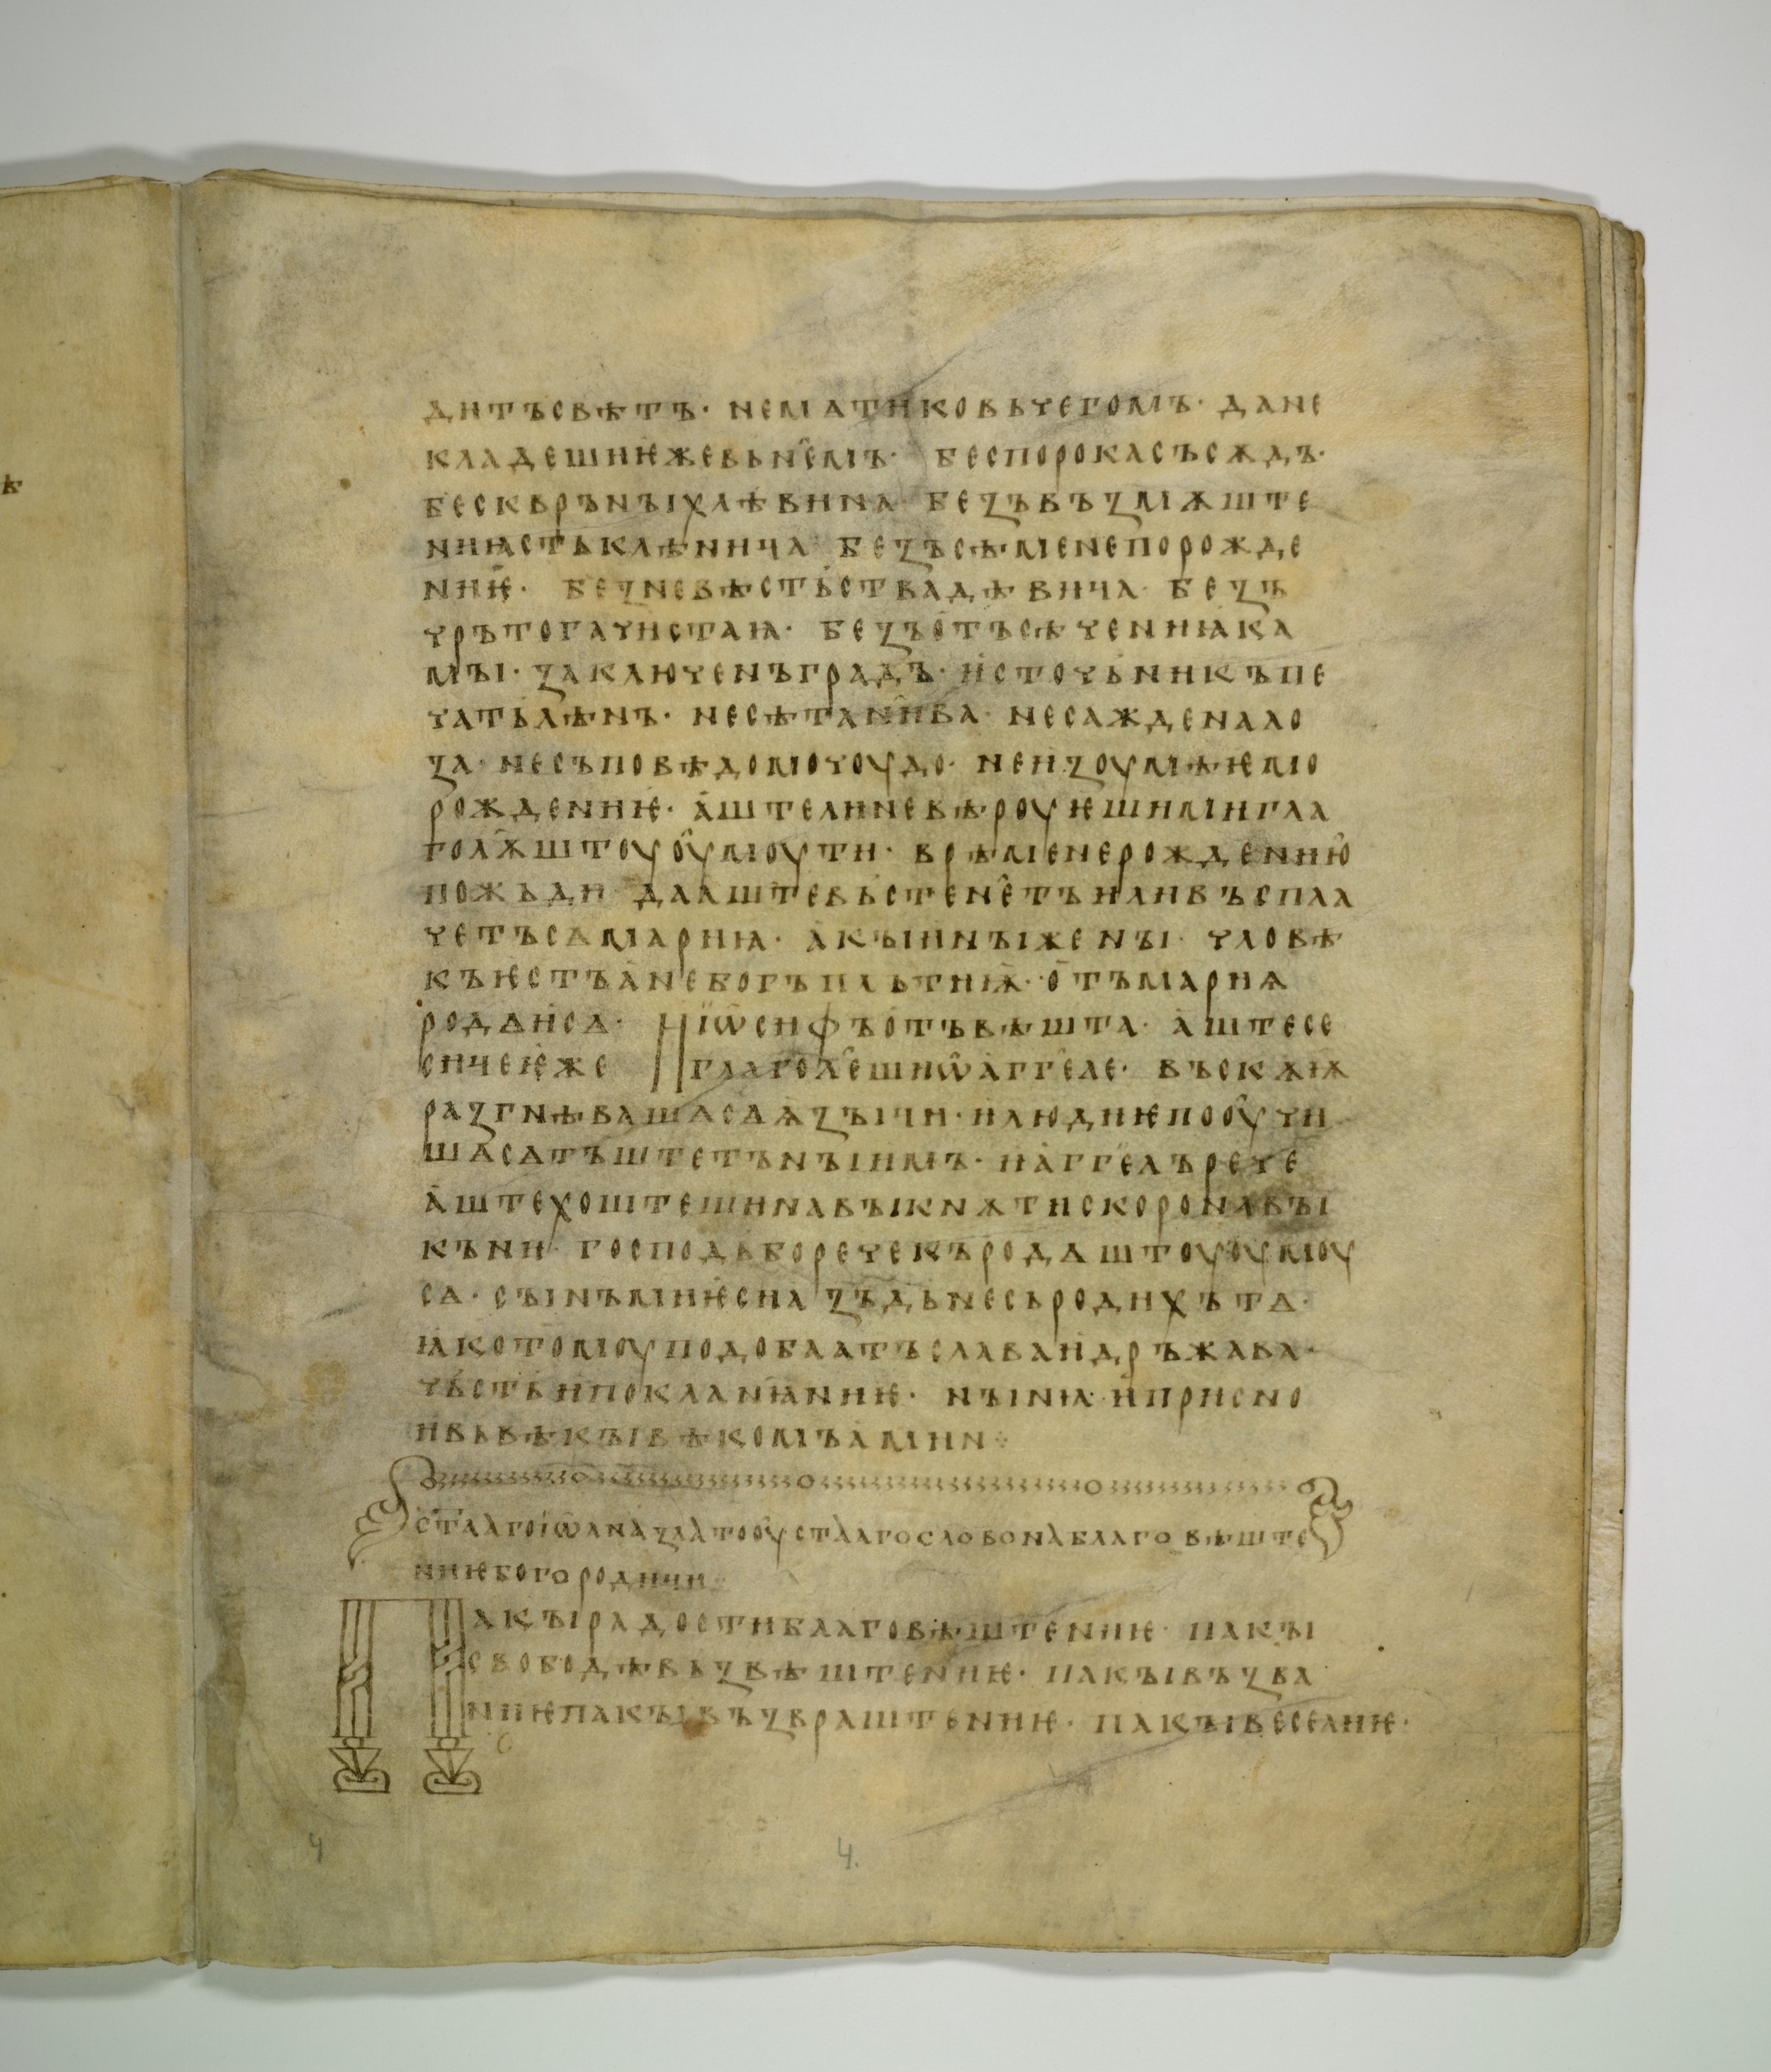 ѣ
дитъсвѣтъ· нематиковьчегомъ· дане
кладешиѥжевьн҄емъ· беспорокасъсѫдъ·
бескврънꙑхлѣвина· безъвъзмѫште
ниꙗстьклѣница· безъсѣменепорожде
ниѥ· безневѣстьствадѣвица· безъ
чрътогачистаꙗ· безъотъсѣчениꙗка
мꙑ· заключенъградъ· источьникъпе
чатьлѣнъ· несѣтан҄ива· несажденало
за· несъповѣдомочоудо· неизоумѣѥмо
рождениѥ· аштелиневѣроуѥшимигла
гол҄ѫштоуоумоути· врѣменерождению
пожъди· дааштевьстен҄етъиливъспла
четъсѧмариꙗ· акꙑинꙑженꙑ· чловѣ
къѥстъанебогъпльтиѭ· отъмариѩ
родѧисѧ· Иіѡсифъотъвѣшта· аштесе
сицеѥже глагол҄ешиѡаггеле· въскѫѭ
разгнѣвашѧсѧѩзꙑци· илюдиѥпооучи
шѧсѧтъштетънꙑимъ· иаггелърече
аштехоштешинавꙑкнѫтискоронавꙑ
къни· господьборечекъродѧштоуоумоу
сѧ· сꙑнъмиѥсиа зъдьнесьродихътѧ·
ꙗкотомоуподобаатъславаидръжава·
чьстьипокланꙗниѥ· нꙑнꙗ· иприсно
ивьвѣкꙑвѣкомъамин⁘
стааго іѡаназлатооустаагословонаблаговѣште
ниѥбогородици
Пакꙑрадостиблаговѣштениѥ· пакꙑ
свободѣвьзвѣштениѥ· пакꙑвъзва
ниѥпакꙑвъзвраштениѥ· пакꙑвеселиѥ·
4 4.